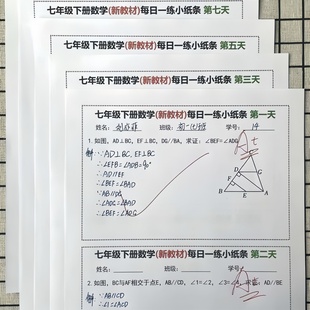 七年级下册数学(新教材)每日一练小纸条 第七天
七年级下册数学(新教材)每日一练小纸条 第五天
七年级下册数学(新教材)每日一练小纸条 第三天
七年级下册数学(新教材)每日一练小纸条 第一天
姓名: 班级: 学号: 14
1. 如图, AD⊥BC, EF⊥BC, DG//BA, 求证: ∠BEF=∠ADG
∵AD⊥BC, EF⊥BC
∴∠EFB=∠ADB=90°
∴AD∥EF
∴∠BEF=∠BAD
∵AB∥DG
∴∠ADG=∠BAD
∴∠BEF=∠ADG
A+
A
G
D
F
B
E
C
七年级下册数学(新教材)每日一练小纸条 第二天
姓名: 班级: 学号:
2. 如图, BC与AF相交于点E, AB//CD, ∠1=∠2, 求证: AD//BE
∵AB∥CD
∴∠1=∠ACD